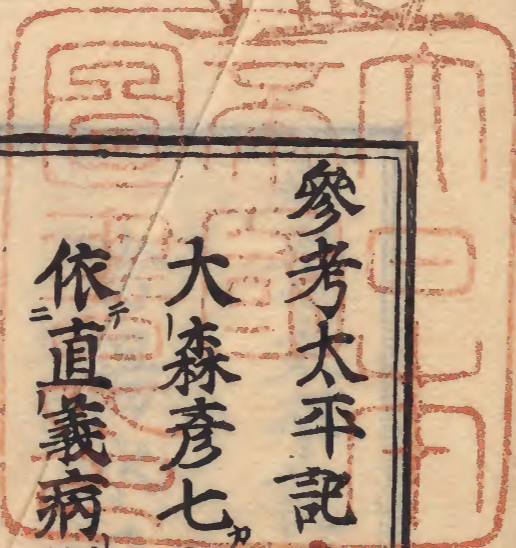 參考太平記
大森彥七カ
依テ二直義病